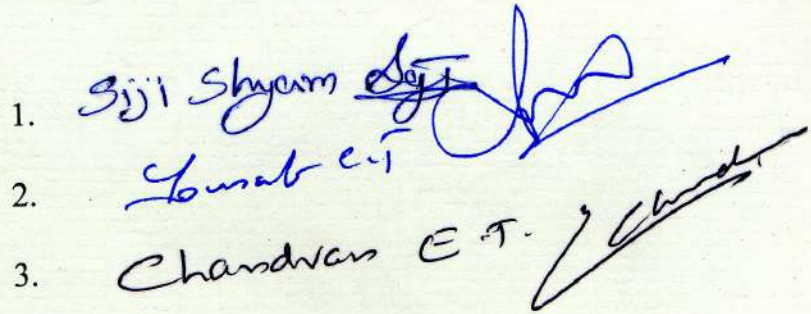 1. Siji Shyam
2. Yousab C.T
3. Chandran E.T.